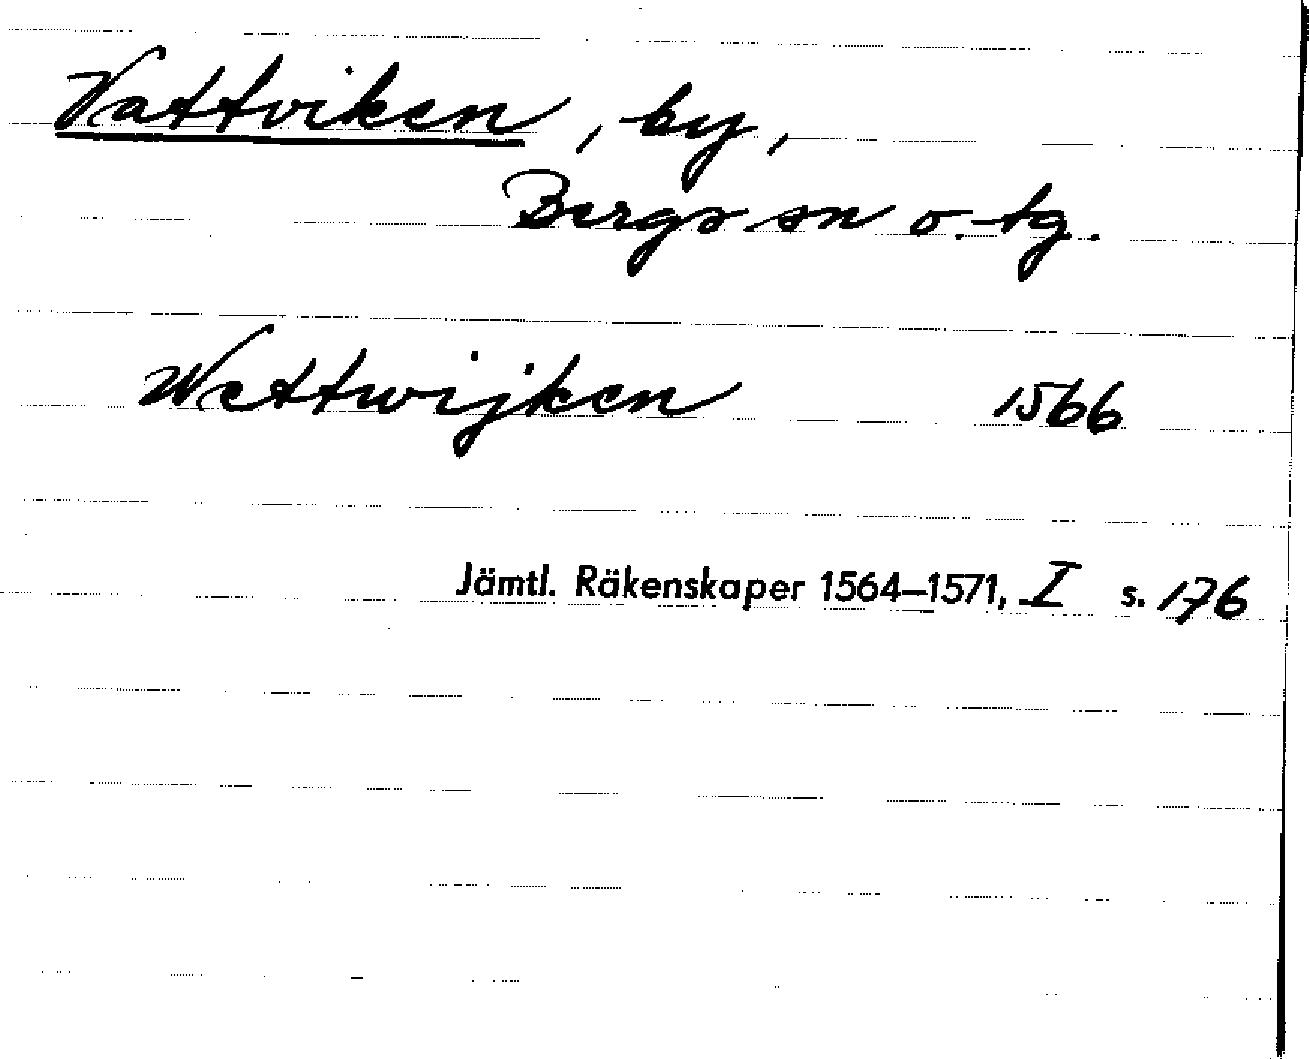 Vattviken, by,
Bergs sn o. tg.
Wettwijken 1566
Jämtl. Räkenskaper 1564–1571, I s. 176